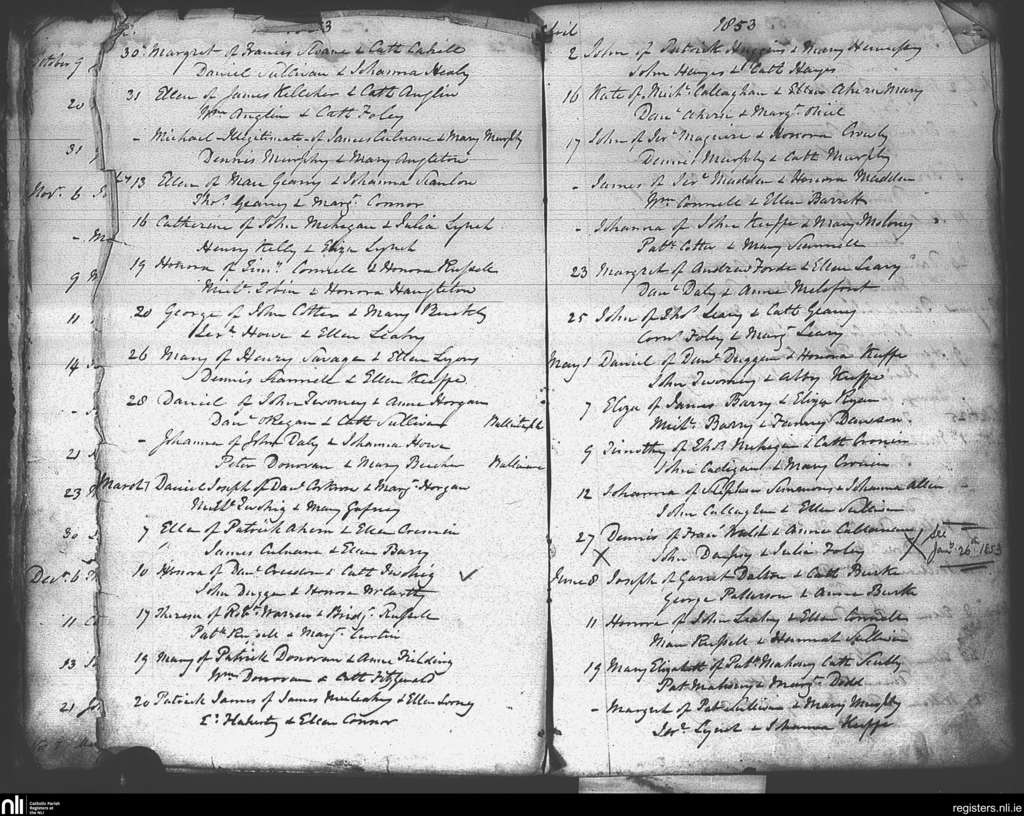 3
30 Margret of Francis Sloane & Cath Cahill
Daniel Sullivan & Johanna Healy
31 Ellen of James Kelleher & Cath Anglin
Wm Anglin & Cath Foley
- Michael Illegitimate of James Culnane & Mary Murphy
Dennis Murphy & Mary Angleton
13 Ellen of Man Geany & Johanna Scanlon
Thos. Geany & Marg. Connor
16 Catherine of John Mehegan & Julia Lynch
Henry Kelly & Eliza Lynch
19 Honora of Timy. Connell & Honora Russell
Michl. Tobin & Honora Haughton
20 George of John Cotter & Mary Buckly
Jerh Howe & Ellen Leahy
26 Mary of Henry Savage & Ellen Lyons
Dennis Scannell & Ellen Keeffe
28 Daniel of John Twomey & Anne Horgan
Danl O'Regan & Cath Sullivan
- Johanna of John Daly & Johanna Howe
Peter Donovan & Mary Buckly
March 1 Daniel Joseph of Danl Corkoran & Marg. Horgan
Michl Twohig & Mary Gafney
7 Ellen of Patrick Ahern & Ellen Cremin
James Culnane & Ellen Barry
10 Honora of Danl Creedon & Cath Twohig
John Duggan & Honora McCarthy
17 Theresa of Robt. Warren & Bridgt. Russell
Patk Russell & Mary Curtin
19 Mary of Patrick Donovan & Anne Fielding
Wm Donovan & Cath Fitzgerald
20 Patrick James of James & Ellen
E. Flaherty & Ellen Connor
October 9
20
31
Nov. 6
9
11
14
21
23
30
Decr. 6
11
13
21
April 1853
2 John of Patrick Huggins & Mary Hennessy
John Hayes & Cath Hayes
16 Kate of Michl. Callaghan & Ellen Ahern Mary
Danl Ahern & Margt. Shiel
17 John of Jerh Maguire & Honora Crowly
Dennis Murphy & Cath Murphy
- James of Jerh Madden & Honora Madden
Wm Connell & Ellen Barrett
- Johanna of John Keeffe & Mary Moloney
Patk Cotter & Mary Scannell
23 Margret of Andrew Forde & Ellen Leary
Danl Daly & Anne
25 John of Thos Leary & Cath Geany
Corns Foley & Marg. Leary
May 1 Daniel of Danl Duggan & Honora Keeffe
John Twomey & Abby Keeffe
7 Eliza of James Barry & Eliza Ryan
Michl. Barry & Fanny Dawson
9 Timothy of Thos Mehegan & Cath Cronin
John Cadigan & Mary Cronin
12 Johanna of Stephen Simmons & Johanna Allen
John Callaghan & Ellen Sullivan
27 Dennis of Fras Walsh & Anne Callanan
John Dempsy & Julia Foley
See Jany. 26th 1853
June 8 Joseph of Garret Dalton & Cath Burke
George Patterson & Anne Burke
11 Honora of John Leahy & Ellen Connell
Man Russell & Hannah Sullivan
19 Mary Elizabeth of Patk Mahony Cath Scully
Pat Mahony & Margt. Dodd
- Margret of Pat Sullivan & Mary Murphy
Jerh. Lynch & Johanna Keeffe
nli
Catholic Parish
Registers at
the NLI
registers.nli.ie